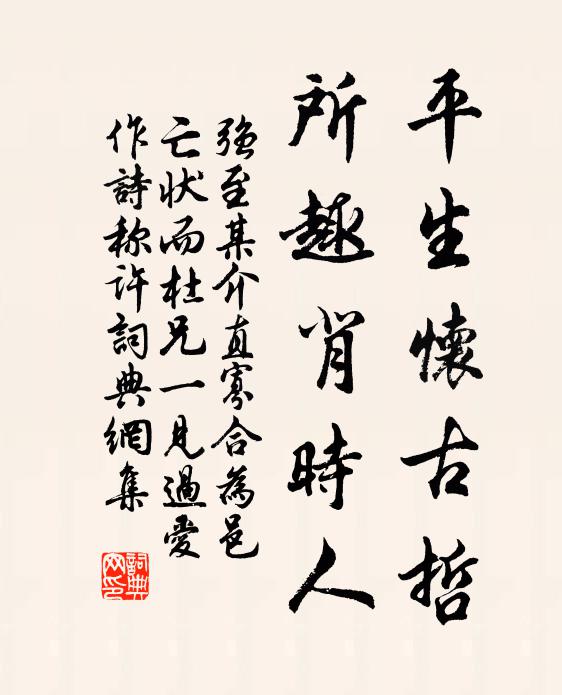 平生懷古哲
所趣背時人
強至某介直寡合為邑
亡狀而杜兄一見過愛
作詩称許詞典網集
詞典
网印